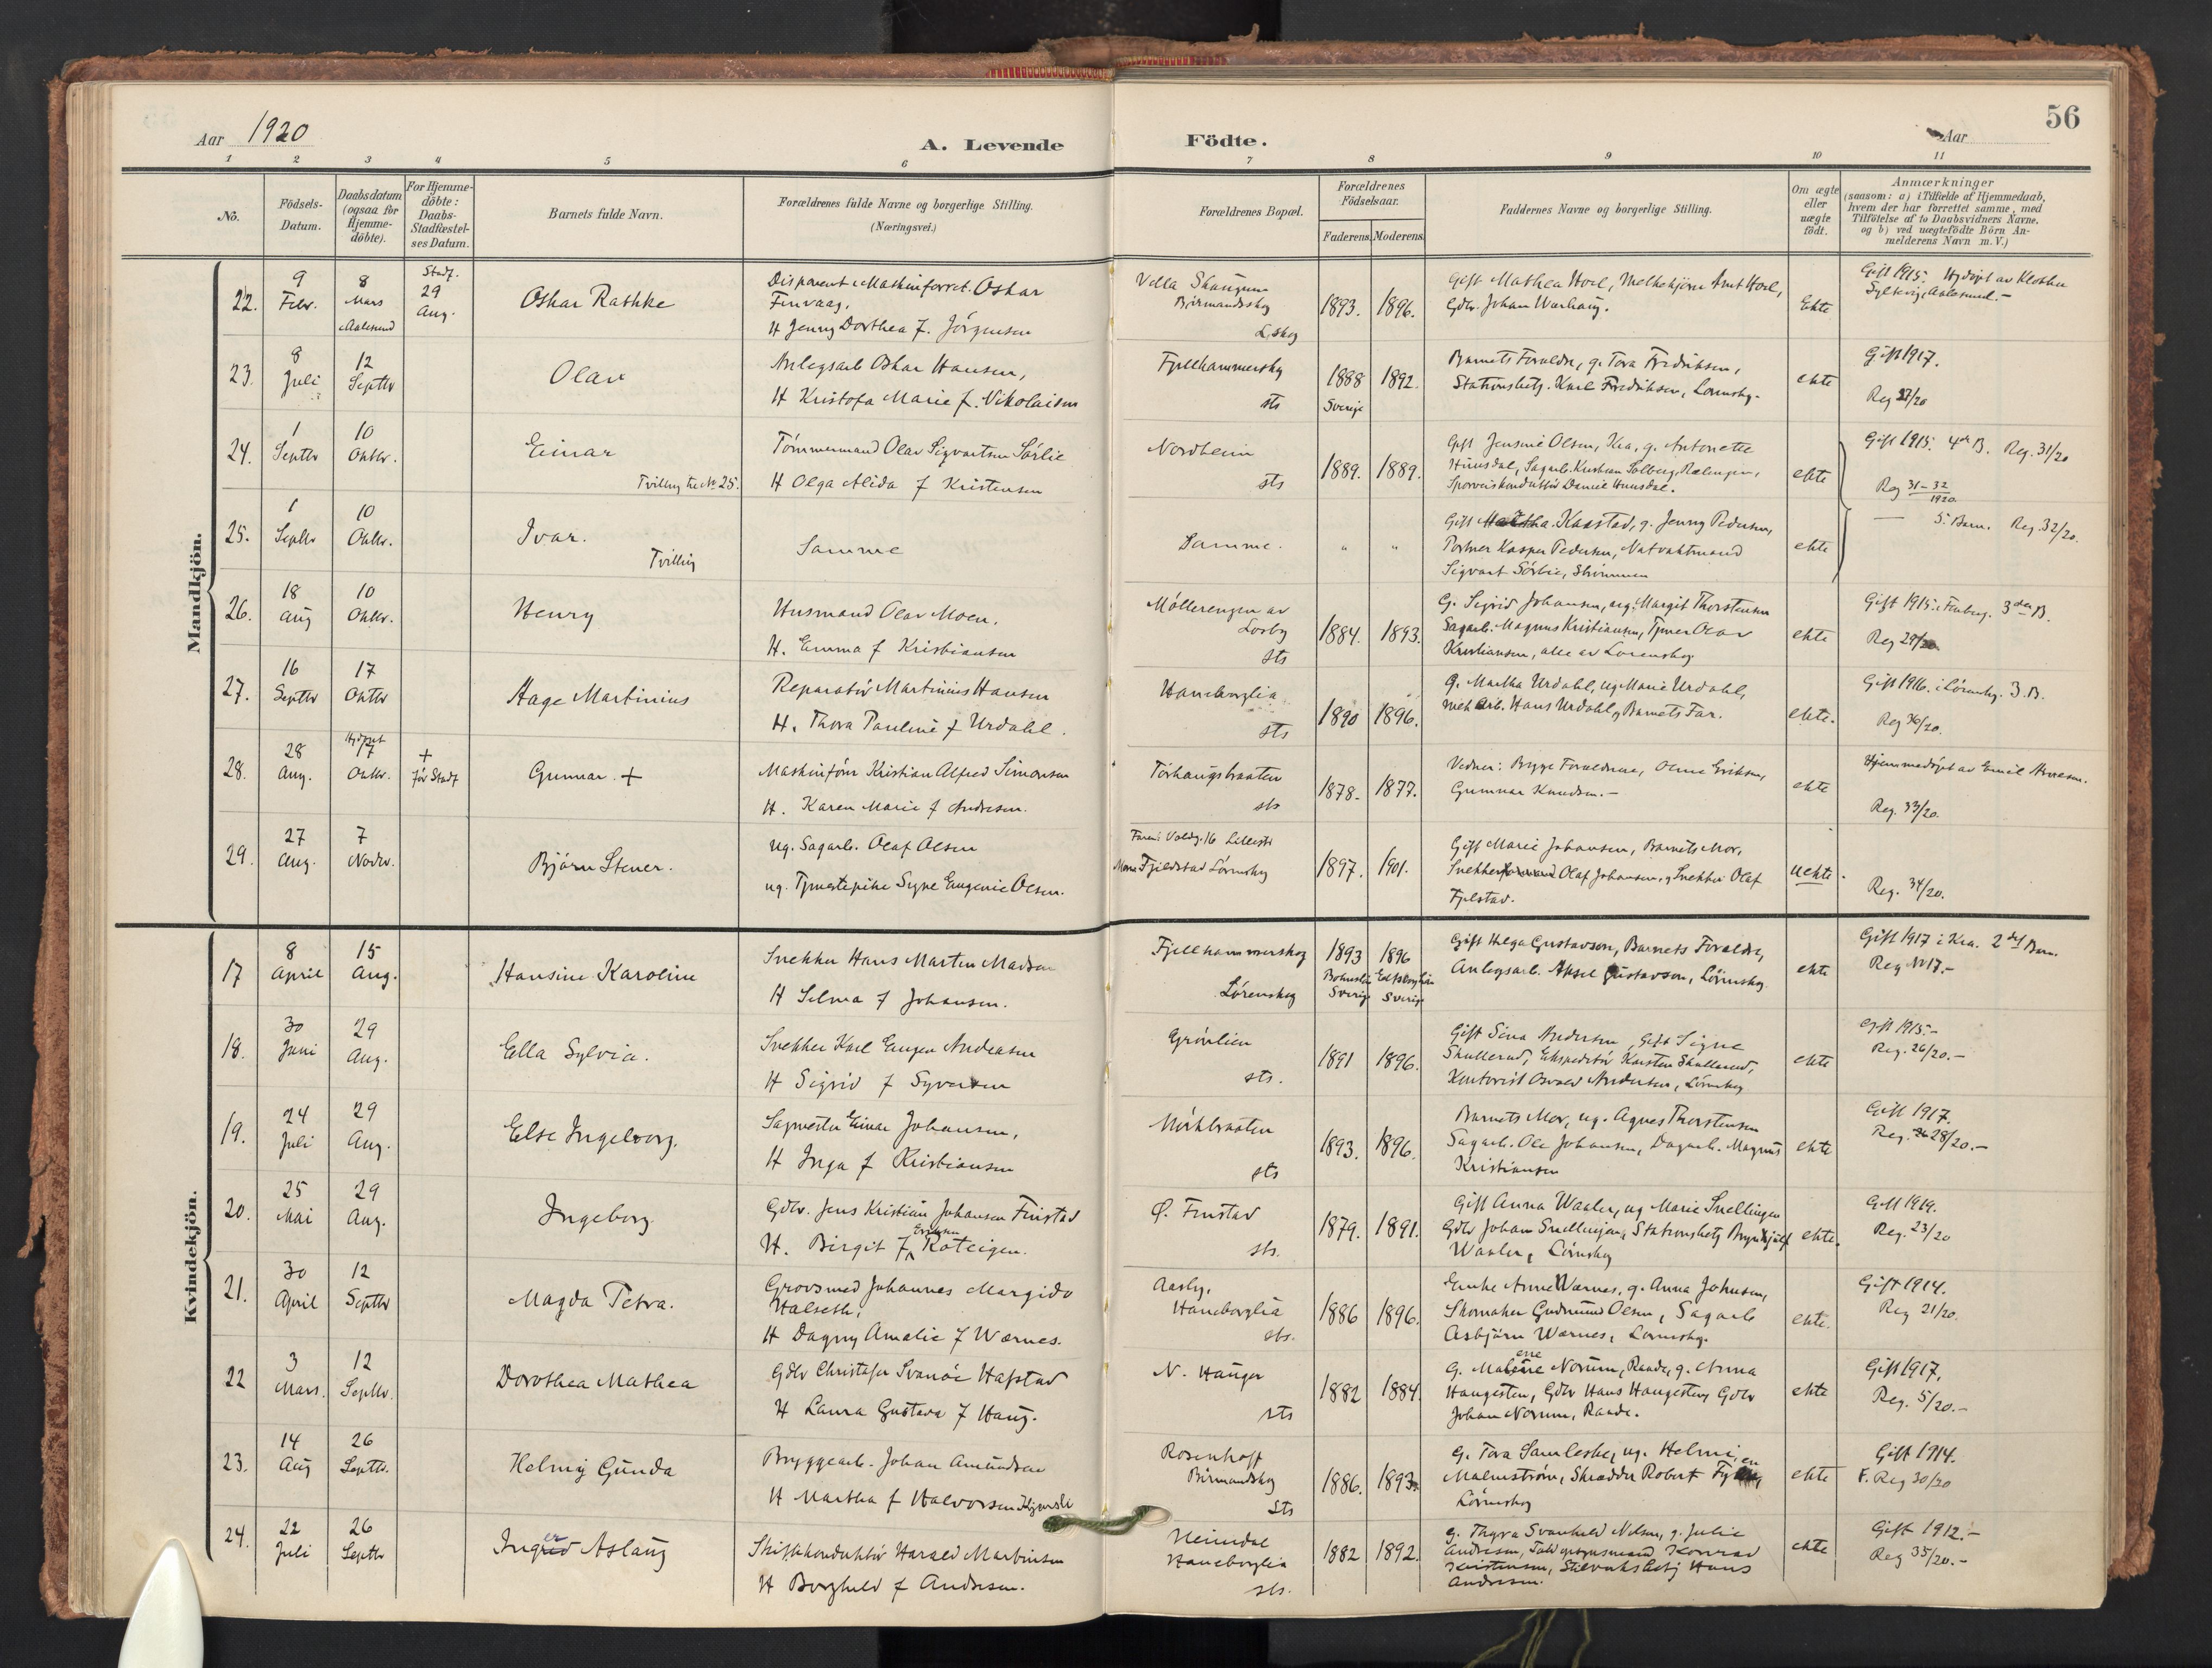 56
Aar 1920
A. Levende Födte.
Aar
1 2 3 4 5 6 7 8 9 10 11
No.
Födsels-Datum.
Daabsdatum (ogsaa for Hjemme-döbte).
For Hjemme-döbte: Daabs-Stadfæstel-ses Datum.
Barnets fulde Navn.
Forældrenes fulde Navne og borgerlige Stilling.
(Næringsvei.)
Forældrenes Bopæl.
Forældrenes Födselsaar.
Faderens. Moderens.
Faddernes Navne og borgerlige Stilling.
Om ægte eller uægte födt.
Anmærkninger
(saasom: a) i Tilfælde af Hjemmedaab,
hvem der har forrettet samme, med
Tilföielse af to Daabsvidners Navne.
og b) ved uægtefödte Börn An-
melderens Navn m. V.)
Mandkjön.
22. 9 Febr. 8 Mars Aalesund Stadf. 29 Aug.
Oskar Rathke
Disponent i Maskinforret. Oskar
Finvaag.
H Jenny Dorthea f. Jörgensen
Villa Skaugum
Birmandsskog
L.skog
1893. 1896.
Gift Mathea Hoel, Melkekjörer Arnt Hoel,
Gdbr. Johan Warhaug.
Ekte
Gift 1915. Hjdöpt av Klokker
Sylteviz, Aalesund.-
23. 8 Juli 12 Septbr
Olav
Anlegsarb Oskar Hansen,
H Kristofa Marie f. Nikolaisen
Fjellhammersky
sts
1888 Sverige 1892.
Barnets Foreldre, g. Tora Fredriksen,
Stationsbetj. Karl Fredriksen, Lörensky.
ekte
Gift 1917.
Reg 27/20
24. 1 Septbr 10 Oktbr.
Einar
Tvilling til No 25.
Tömmermand Olav Sigvartsen Sörlie
H Olga Alida f Kristensen
Nordheim
sts
1889. 1889.
Gift Jensine Olsen, Kra, g. Antonette
Huusdal, Sagarb. Kristian Solberg, Rælingen,
Sporveiskonduktör Daniel Huusdal.
ekte
Gift 1915. 4de B. Reg. 31/20
Reg 31-32 1920.
25. 1 Septbr 10 Oktbr.
Ivar.
Tvilling
Samme
Samme.
" "
Gift Martha Kaastad, g. Jenny Pedersen,
Portner Kasper Pedersen, Natvaktmand
Sigvart Sörlie, Strömmen
ekte
5. Barn. Reg. 32/20.
26. 18 Aug 10 Oktbr.
Henry
Husmand Olav Moen.
H. Emma f Kristiansen
Möllerengen av
Losby
sts
1884. 1893.
G. Sigrid Johansen, ug. Margit Thorstensen
Sagarb. Magnus Kristiansen, Tjener Olav
Kristiansen, alle av Lorenskog
ekte
Gift 1915 i Fenberg. 3die B.
Reg 29/20
27. 16 Septbr 17 Oktbr
Hage Martinius
Reparatör Martinius Hansen
H. Thora Pauline f Urdahl.
Haneborglia
sts
1890 1896.
g. Martha Urdahl, ug Marie Urdahl,
mek arb. Hans Urdahl, Barnets Far.
ekte.
Gift 1916. i Lörensky. 3.B.
Reg 36/20.
28. 28 Aug. Hjdöpt 17 Oktbr. + för Stadf
Gunnar. +
Maskinförer Kristian Alfred Simonsen
H. Karen Marie f Andresen.
Torhaugsbraaten
sts
1878. 1877.
Vidner: Begge Foreldrene, Olene Eriksen,
Gunnar Knudsen.-
ekte
Hjemmedöpt av Emil
Reg. 33/20.
29. 27 Aug. 7 Novbr.
Björn Stener.
ug. Sagarb. Olaf Olsen
ug. Tjenestepike Signe Eugenie Olsen.
Faren: Voldg. 16 Lillestr
Moren Fjeldstad Lörensky
1897. 1901.
Gift Marie Johansen, Barnets Mor,
Snekker Olaf Johansen, Snekker Olaf
Fjelstad.
uekte
Reg. 34/20.
Kvindekjön.
17 8 April 15 Aug.
Hansine Karoline
Snekker Hans Martin Madsen
H Selma f Johansen.
Fjellhammerskog
Lörenskog
1893 Sverige 1896 Sverige
Gift Helga Gustavson, Barnets Foreldre,
Anlegsarb. Aksel Gustavson, Lörensky.
ekte
Gift 1917 i Kra. 2det Barn.
Reg No 17.-
18. 30 Juni 29 Aug.
Ella Sylvia.
Snekker Karl Eugen Andersen
H Sigrid f Syversen
Grönlien
sts.
1891 1896.
Gift Sina Andersen, Gift Signe
Skullerud, Ekspeditör Karsten Skullerud,
Kontorist Osvald Andersen, Lörensky
ekte
Gift 1915-
Reg. 26/20.-
19. 24 Juli 29 Aug.
Else Ingeborg.
Sagmester Einar Johansen,
H Inga f Kristiansen
Mörkbraaten
sts
1893. 1896.
Barnets Mor, ug. Agnes Thorstensen
Sagarb. Ole Johansen, Dagarb. Magnus
Kristiansen
ekte
Gift 1917.
Reg. 28/20.-
20. 25 Mai 29 Aug.
Ingeborg
Gdbr. Jens Kristian Johansen Finstad
H. Birgit f Eriksen Roteigen.
Ö. Finstad
sts.
1879. 1891.
Gift Anna Waaler, ug Marie Snellingen
Gdbr Johan Snellingen, Stationsbetj Brynhjulf
Waaler, Lörensky
ekte.
Gift 1919.
Reg. 23/20
21. 30 April 12 Septbr
Magda Petra.
Grovsmed Johannes Margido
Halseth,
H Dagny Amalie f Wærnes.
Aasly,
Haneborglia
sts.
1886 1896.
Enke Anne Wærnes, g. Anna Johnsen,
Skomaker Gudmund Olsen, Sagarb
Asbjörn Wærnes, Lörensky.
ekte.
Gift 1914.
Reg 21/20.
22 3 Mars. 12 Septbr.
Dorothea Mathea
Gdbr Christofer Svanöe Hafstad
H Laura Gustava f Haug.
N. Hauger
sts
1882 1884.
G. Malene Norum, Raade, g. Anna
Haugesten, Gdbr Hans Haugesten, Gdbr
Johan Norum, Raade.
ekte
Gift 1917,
Reg. 5/20.-
23. 14 Aug 26 Septbr.
Helmy Gunda
Bryggearb. Johan Amundsen
H Martha f Halvorsen
Rosenhoff
Birmandsky
Sts
1886. 1893
G. Tora Samleske, ug. Helmi
Malmström, Skrædder Robert
Lörensky
ekte
Gift 1914.
F. Reg 30/20
24. 22 Juli 26 Septbr
Inger Aslaug
Skiftkonduktör Harald Martinsen
H Borghild f Andresen.
Heimdal
Haneborglia
sts.
1882 1892.
g. Thyra Svanhild Nilsen, g. Julie
Andresen, Konrad
Kristensen, Hans
Andresen.
ekte
Gift 1912.-
Reg 35/20.-